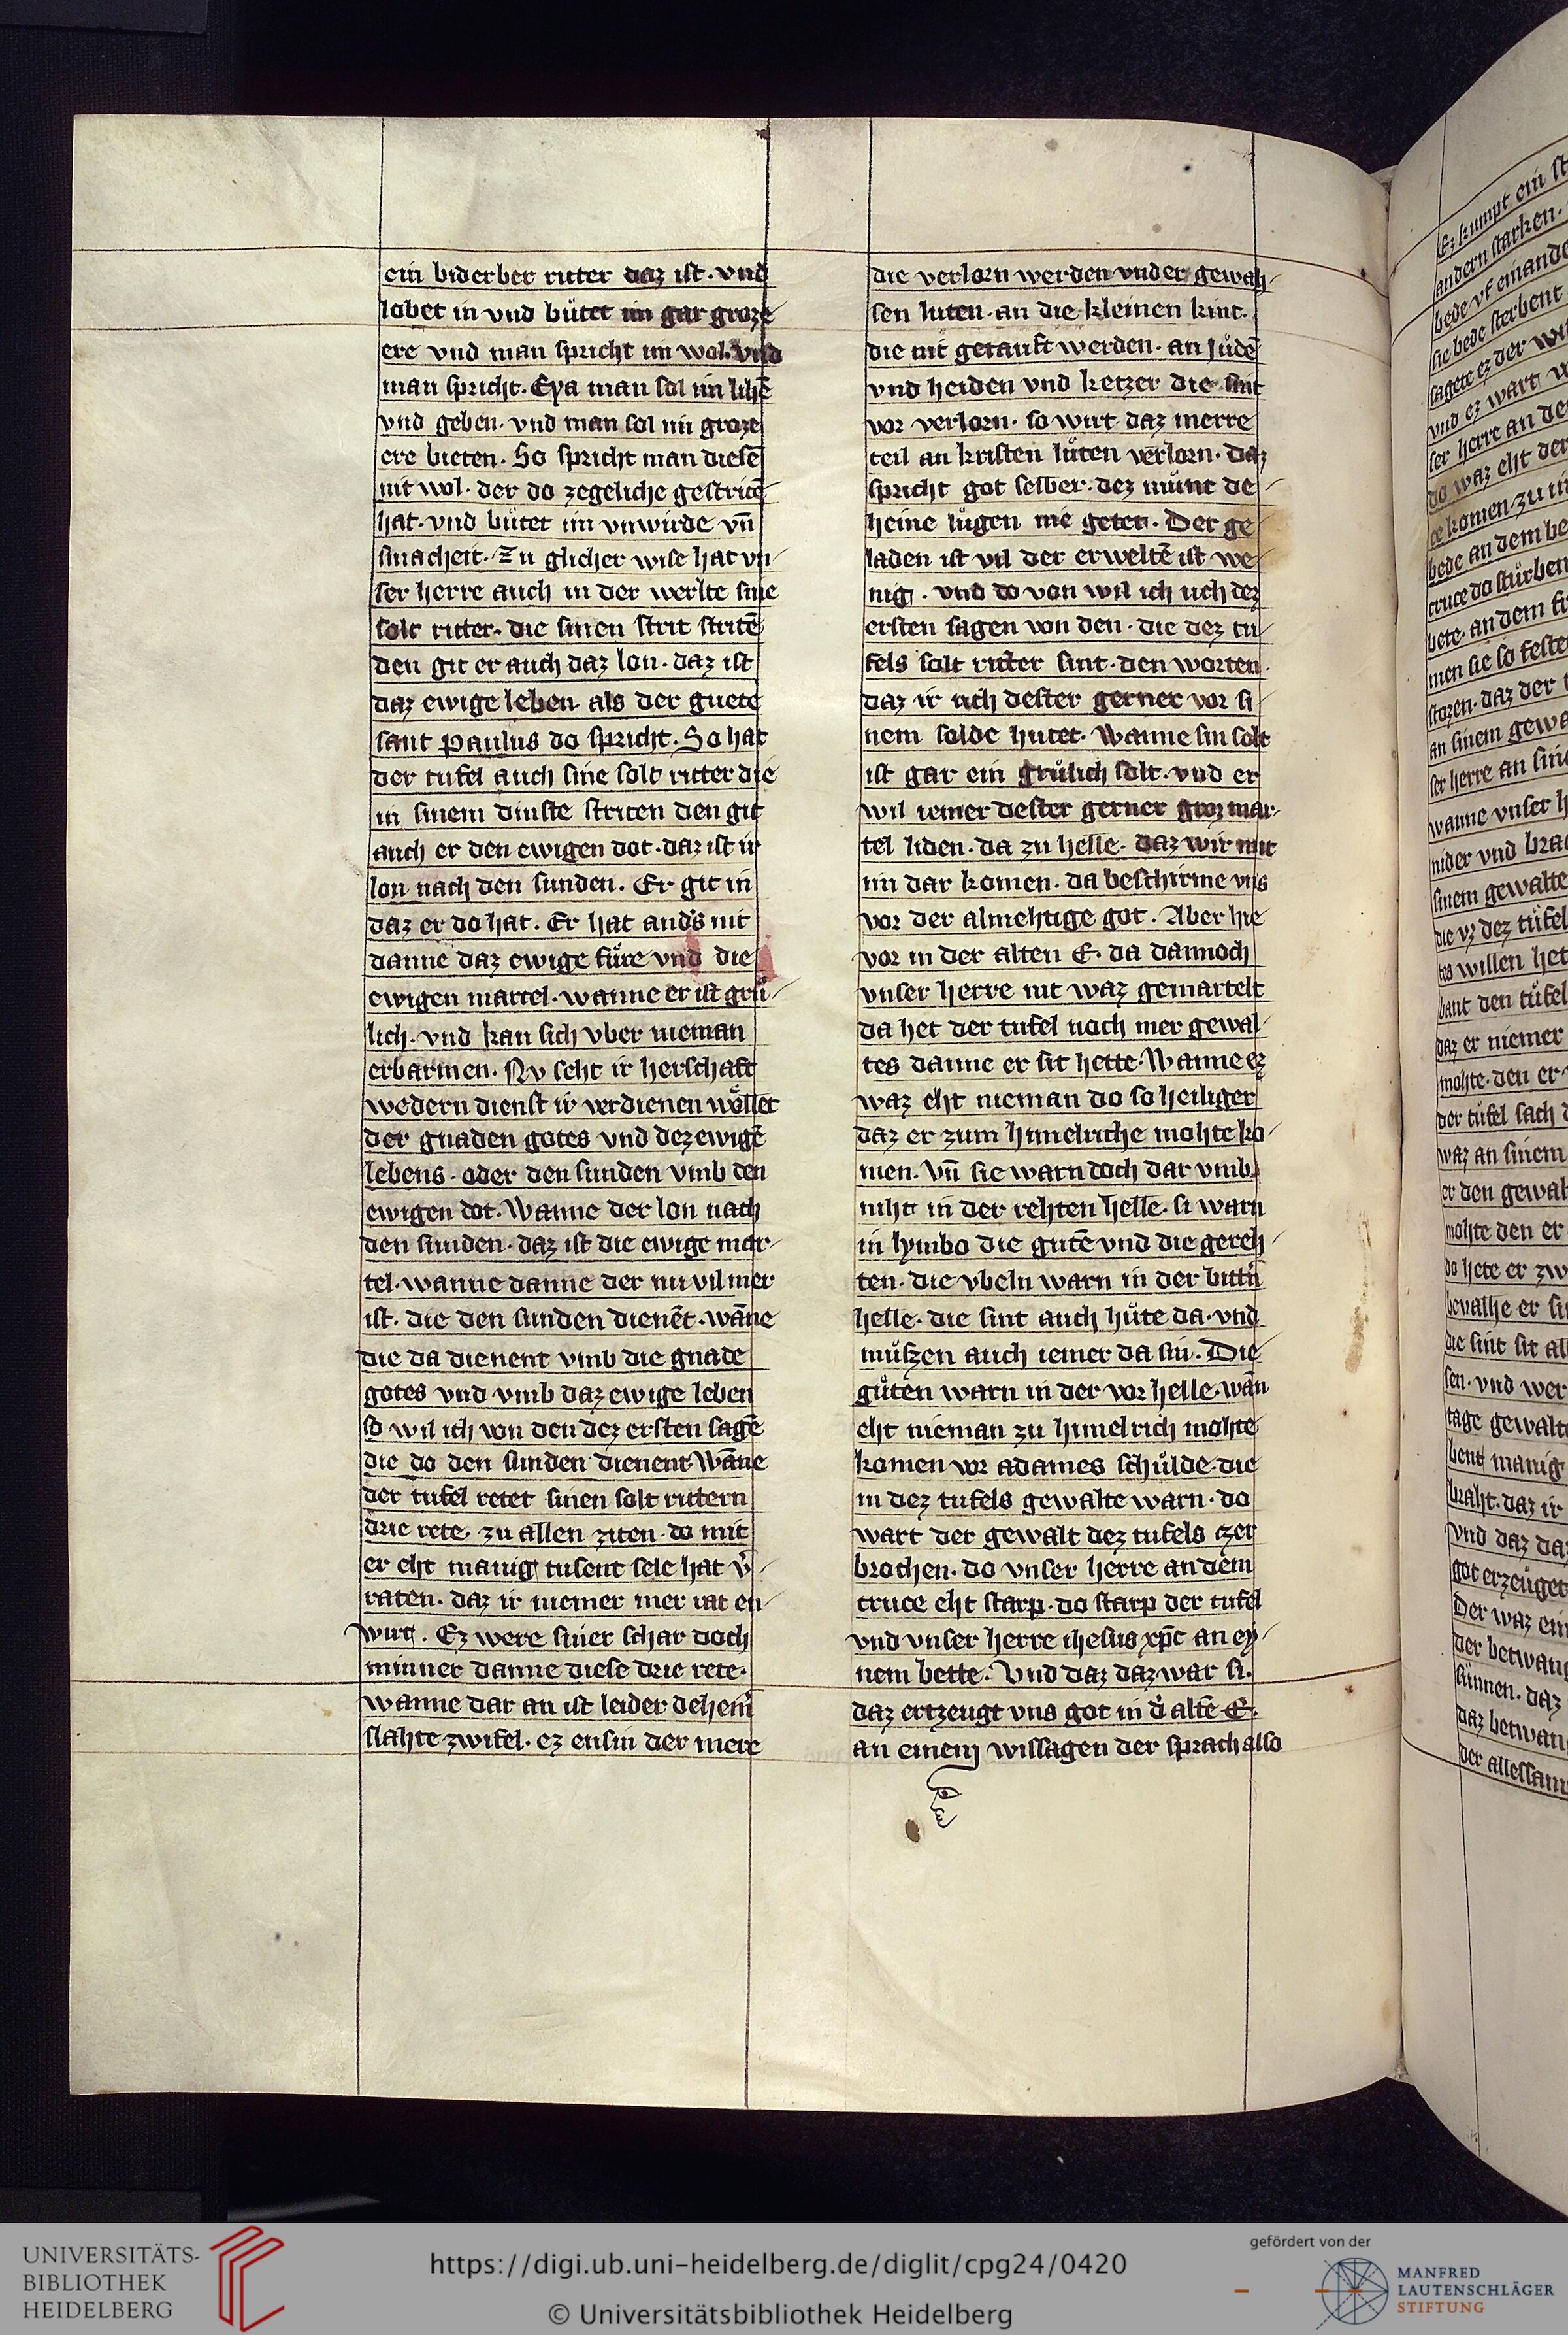 ein biderber ritter daz ist · vnd
lobet in vnd bu̍tet im gar groze
ere vnd man spricht im wol · vnd
man spricht · Eya man sol im lihē
vnd geben · vnd man sol im groze
ere bieten · So spricht man diesē
nit wol · der do zegeliche gestritē
hat · vnd bu̍tet im vnwirde vn̄
smacheit · Zu glicher wise hat vn/
ser herre auch in der werlte sine
solt ritter · die sinen strit stritē
den git er auch daz lon · daz ist
daz ewige leben als der guete
sant Paulus do spricht · So hat
der tufel auch sine solt ritter die
in sinem dinste striten den git
auch er den ewigen dot · daz ist ir
lon nach den sunden · Er git in
daz er do hat · Er hat and's nit
danne daz ewige fu̍re vnd die
ewigen martel · wanne er ist gru̍/
lich · vnd kan sich vber nieman
erbarmen · Nv seht ir herschaft
wedern dienst ir verdienen wo̍llet
der gnaden gotes vnd dez ewigē
lebens · oder den sunden vmb den
ewigen dot · Wanne der lon nach
den sunden · daz ist die ewige mar/
tel · wanne danne der nu vil mer
ist · die den sunden dienēt · wāne
die da dienent vmb die gnade
gotes vnd vmb daz ewige leben
so wil ich von den dez ersten sagē
die do den sunden dienent Wāne
der tufel retet sinen solt rittern
drie rete · zu allen ziten · do mit
er eht manig tusent sele hat v'/
raten · daz ir niemer mer rat en/
wirt · Ez were siner schar doch
minner danne diese drie rete ·
wanne dar an ist leider dehein'
slahte zwifel · ez ensin der mere
die verlorn werden vnder gewah/
sen luten · an die kleinen kint ·
die nit getauft werden · an ju̍dē
vnd heiden vnd ketzer die sint
vor verlorn · so wirt daz merre
teil an kristen lu̍ten verlorn · daz
spricht got selber · dez mu̍nt de/
heine lu̍gen nie geten · Der ge/
laden ist vil der erweltē ist we/
nig · vnd do von wil ich uch dez
ersten sagen von den · die dez tu/
fels solt ritter sint · den worten ·
daz ir uch dester gerner vor si/
nem solde hutet · Wanne sin solt
ist gar ein gru̍lich solt · vnd er
wil iemer dester gerner groz mar/
tel liden · da zu helle · daz wir mit
im dar komen · da beschirme vns
vor der almehtige got · Aber hie
vor in der alten E · da dannoch
vnser herre nit waz gemartelt
da het der tufel noch mer gewal/
tes danne er sit hette · Wanne ez
waz eht nieman do so heiliger
daz er zum himelriche mohte ko/
men · Vn̄ sie warn doch dar vmb
niht in der rehten helle · si warn
in lymbo die gutē vnd die gereh/
ten · die vbeln warn in der bittn̄
helle · die sint auch hu̍te da · vnd
mu̍szen auch iemer da sin · Die
gu̍ten warn in der vor helle · wān
eht nieman zu himelrich mohte
komen vor adames schu̍lde · die
in dez tufels gewalte warn · do
wart der gewalt dez tufels czer
brochen · do vnser herre an dem
cruce eht starp · do starp der tufel
vnd vnser herre ihesus xp̄c an ey/
nem bette · Vnd daz daz war si ·
daz ertzeugt vns got in d' altē E ·
an einem wissagen der sprach also
UNIVERSITÄTS-
BIBLIOTHEK
HEIDELBERG
https://digi.ub.uni-heidelberg.de/diglit/cpg24/0420
© Universitätsbibliothek Heidelberg
gefördert von der
MANFRED
LAUTENSCHLÄGER
STIFTUNG